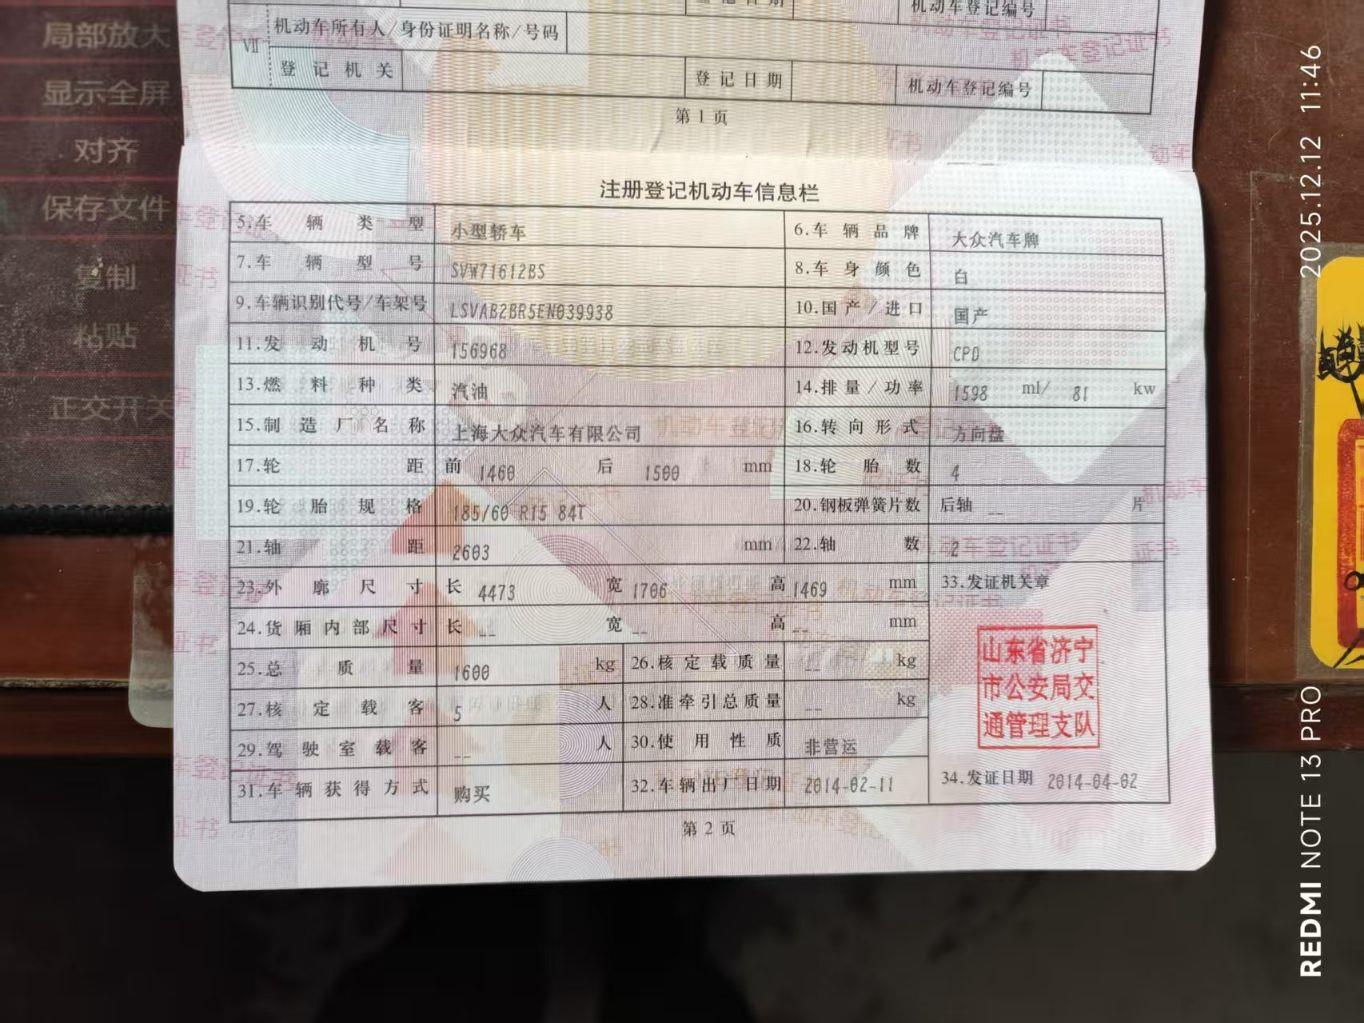 局部放大
显示全屏
对齐
保存文件
复制
粘贴
正交开关
登记日期 机动车登记编号
Ⅶ 机动车所有人/身份证明名称/号码
登记机关 登记日期 机动车登记编号
第1页
注册登记机动车信息栏
5.车辆类型 小型轿车 6.车辆品牌 大众汽车牌
7.车辆型号 SVW71612BS 8.车身颜色 白
9.车辆识别代号/车架号 LSVAB2BR5EN039938 10.国产/进口 国产
11.发动机号 156968 12.发动机型号 CPD
13.燃料种类 汽油 14.排量/功率 1598 ml/ 81 kw
15.制造厂名称 上海大众汽车有限公司 16.转向形式 方向盘
17.轮距 前 1460 后 1500 mm 18.轮胎数 4
19.轮胎规格 185/60 R15 84T 20.钢板弹簧片数 后轴 -- 片
21.轴距 2603 mm 22.轴数 2
23.外廓尺寸 长 4473 宽 1706 高 1469 mm 33.发证机关章
24.货厢内部尺寸 长 -- 宽 -- 高 -- mm
25.总质量 1600 kg 26.核定载质量 -- kg
27.核定载客 5 人 28.准牵引总质量 -- kg
29.驾驶室载客 -- 人 30.使用性质 非营运
31.车辆获得方式 购买 32.车辆出厂日期 2014-02-11 34.发证日期 2014-04-02
山东省济宁
市公安局交
通管理支队
第2页
REDMI NOTE 13 PRO 2025.12.12 11:46